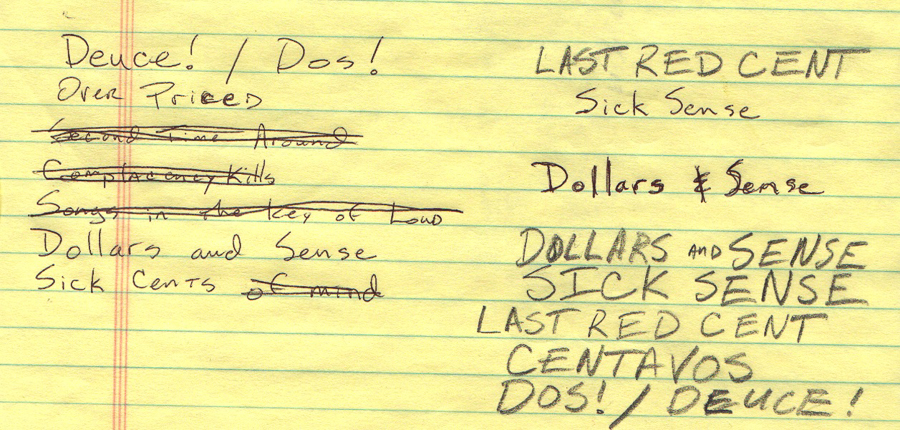 Deuce! / Dos!
Over Priced
Second Time Around
Complacency Kills
Songs in the Key of Loud
Dollars and Sense
Sick Cents of mind
LAST RED CENT
Sick Sense
Dollars & Sense
DOLLARS AND SENSE
SICK SENSE
LAST RED CENT
CENTAVOS
DOS! / DEUCE!